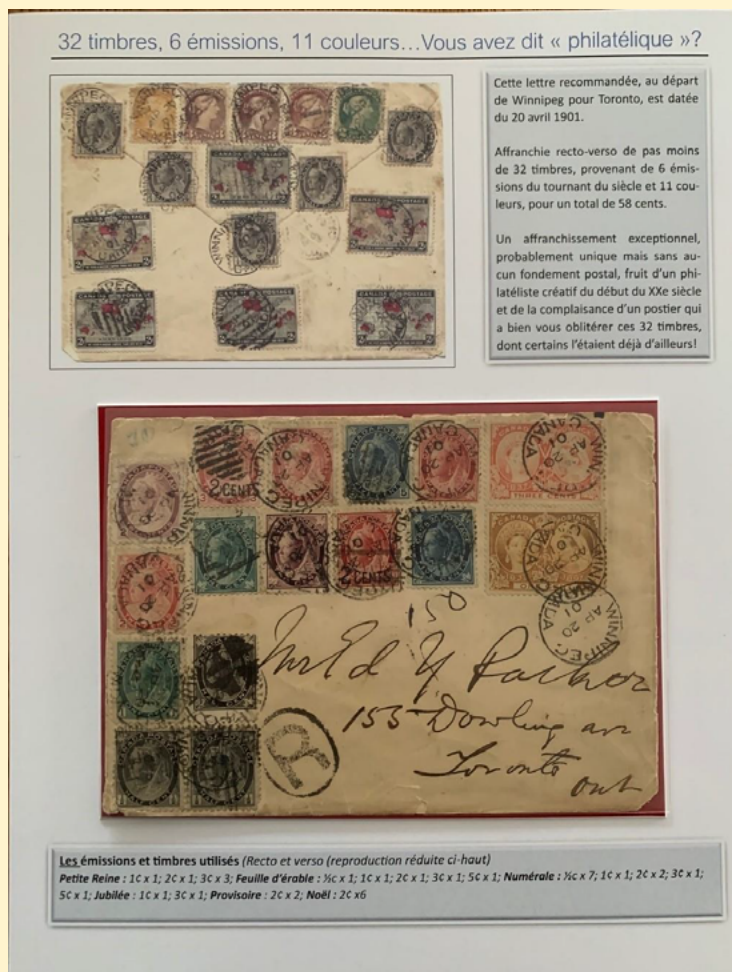 32 timbres, 6 émissions, 11 couleurs...Vous avez dit « philatélique »?
Cette lettre recommandée, au départ
de Winnipeg pour Toronto, est datée
du 20 avril 1901.
Affranchie recto-verso de pas moins
de 32 timbres, provenant de 6 émis-
sions du tournant du siècle et 11 cou-
leurs, pour un total de 58 cents.
Un affranchissement exceptionnel,
probablement unique mais sans au-
cun fondement postal, fruit d'un phi-
latéliste créatif du début du XXe siècle
et de la complaisance d'un postier qui
a bien vous oblitérer ces 32 timbres,
dont certains l'étaient déjà d'ailleurs!
CANADA POSTAGE
2 CENTS
THREE CENTS
2 CENTS
WINNIPEG
AP 20
01
CANADA
R
Mr Ed Y Parker
155 Dowling av
Toronto
Ont
HALF CENT
HALF CENT
Les émissions et timbres utilisés (Recto et verso (reproduction réduite ci-haut)
Petite Reine : 1¢ x 1; 2¢ x 1; 3¢ x 3; Feuille d'érable : ½c x 1; 1¢ x 1; 2¢ x 1; 3¢ x 1; 5¢ x 1; Numérale : ½c x 7; 1¢ x 1; 2¢ x 2; 3¢ x 1;
5¢ x 1; Jubilée : 1¢ x 1; 3¢ x 1; Provisoire : 2¢ x 2; Noël : 2¢ x6